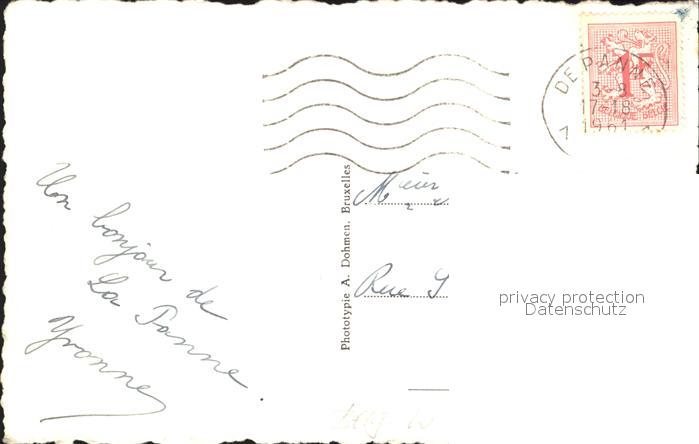 DE PANNE
3-8
17-18
1961
1F
BELGIQUE BELGIE
Un bonjour de
La Panne
Yvonne
Phototypie A. Dohmen, Bruxelles
Rue S
privacy protection
Datenschutz